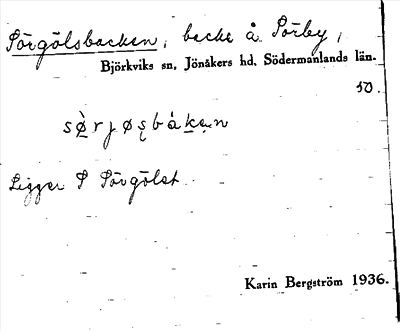 Sörgölsbacken, backe å Sörby,
Björkviks sn, Jönåkers hd, Södermanlands län.
50.
Ligger S Sörgölet.
Karin Bergström 1936.